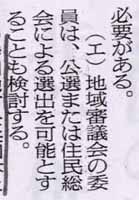 必要がある。
（エ）地域審議会の委
員は、公選または住民総
会による選出を可能とす
ることも検討する。